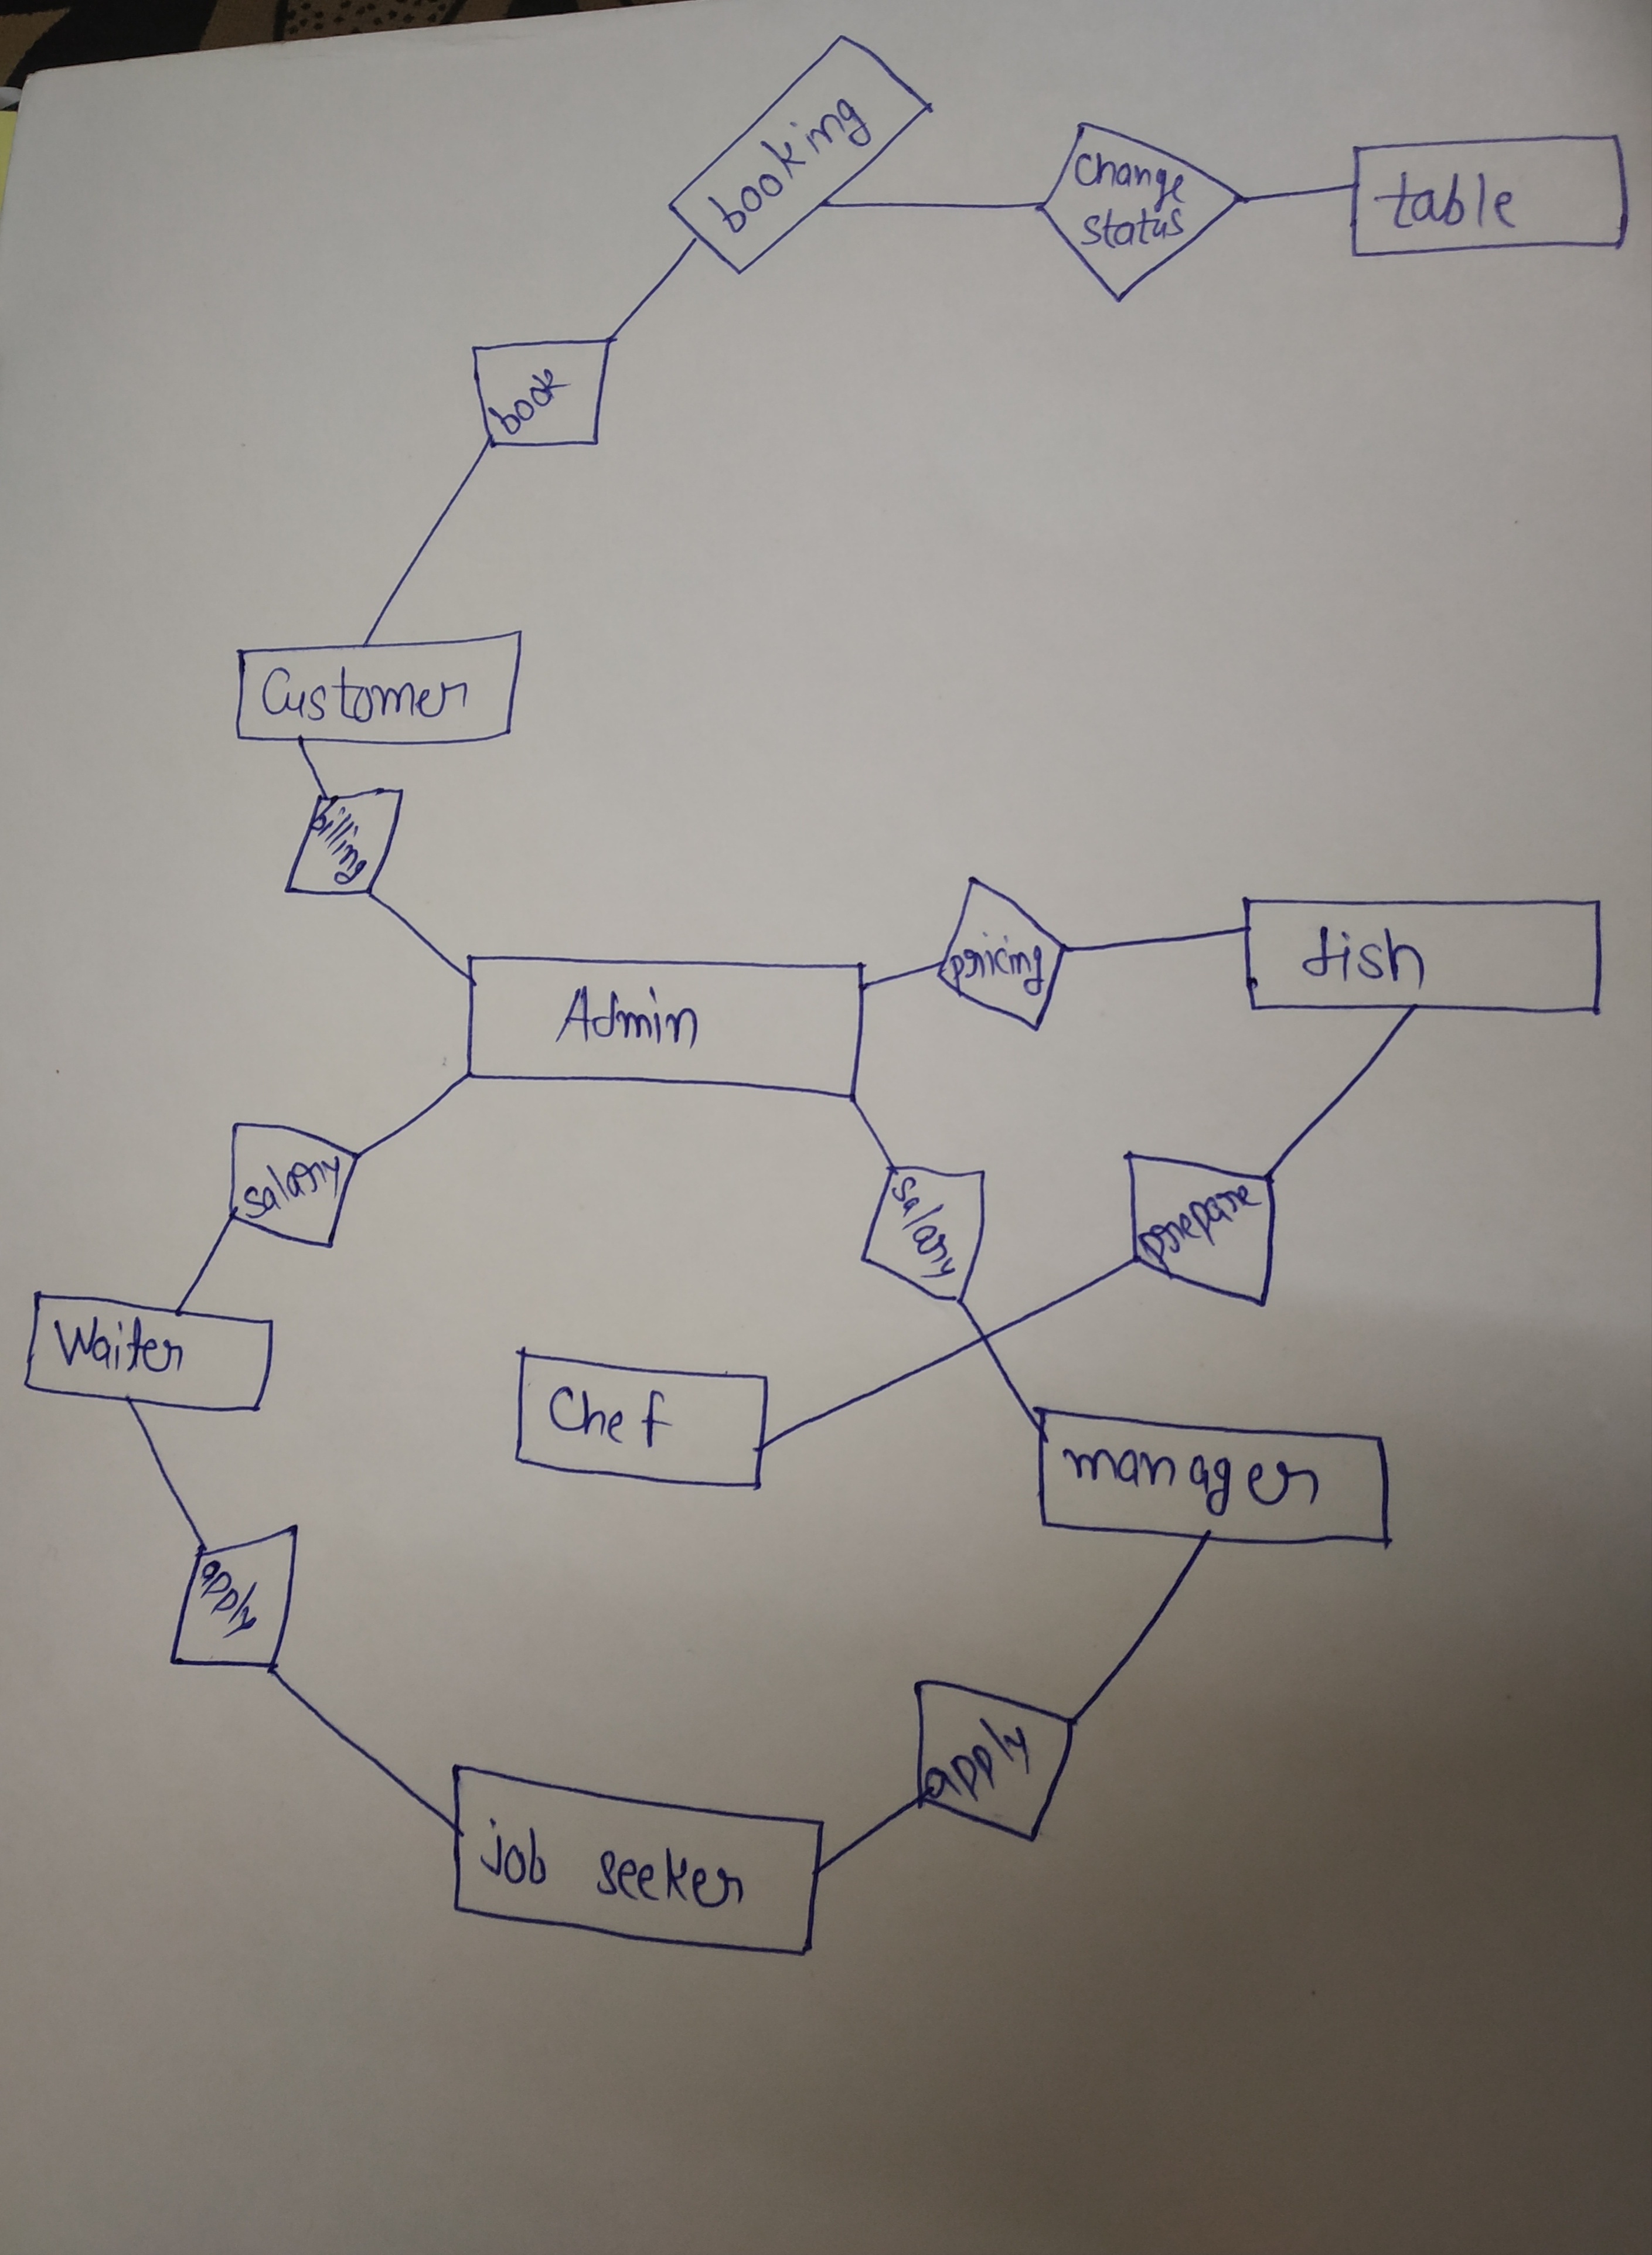 booking
Change
status
table
book
Customer
billing
pricing
dish
Admin
salary
salary
prepare
Waiter
Chef
manager
apply
apply
job seeker